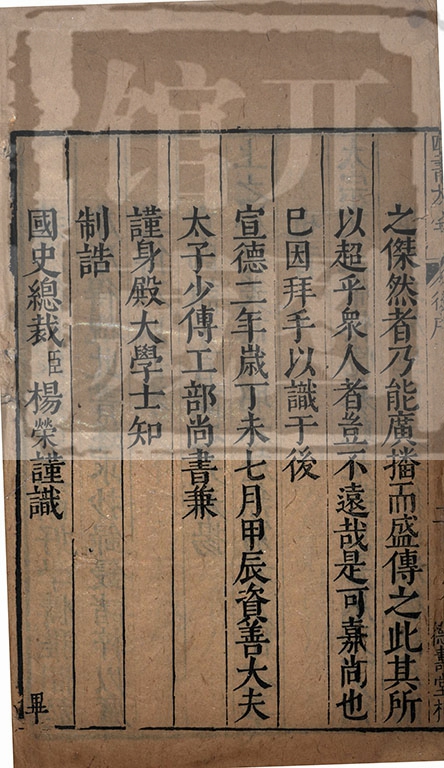 之傑然者乃能廣播而盛傳之此其所
以超乎衆人者豈不遠哉是可嘉尚也
已因拜手以識于後
宣德二年歲丁未七月甲辰資善大夫
太子少傅工部尚書兼
謹身殿大學士知
制誥
國史總裁臣楊榮謹識
畢